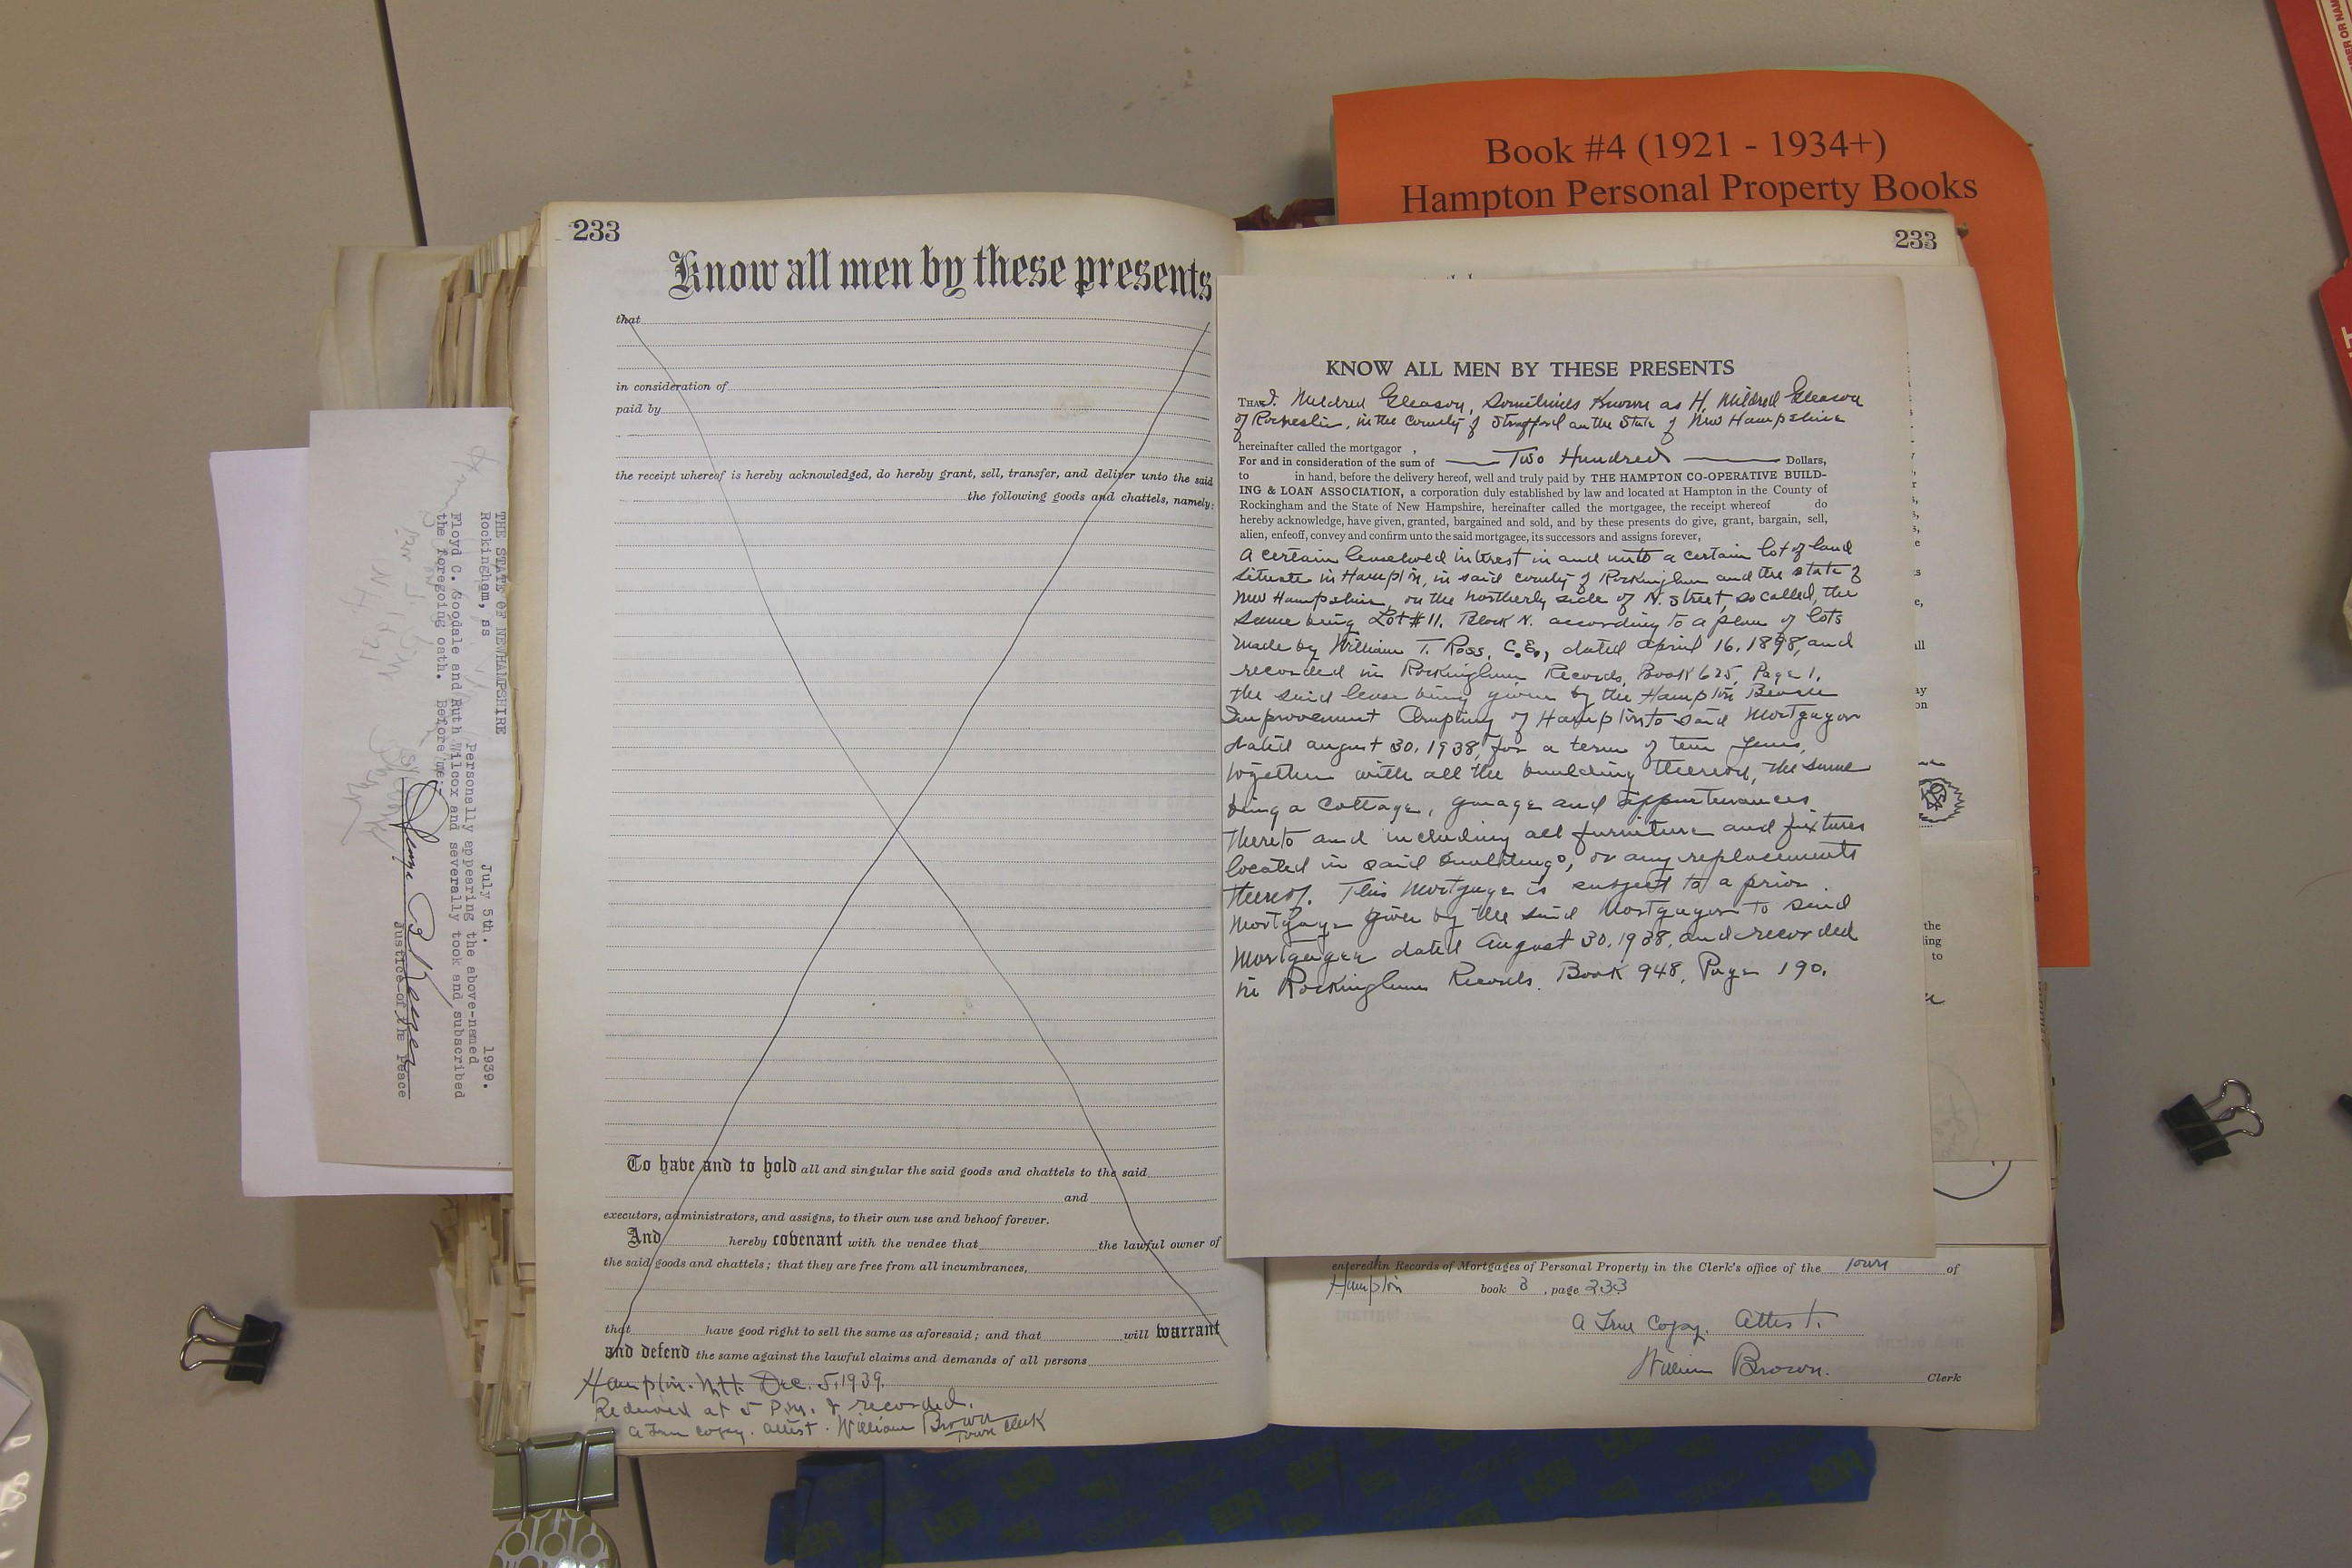 Book #4 (1921 - 1934+)
Hampton Personal Property Books
THE STATE OF NEW HAMPSHIRE
Rockingham, ss July 5th. 1939.
Personally appearing the above-named
Floyd C. Goodale and Ruth Wilcox and severally took and subscribed
the foregoing oath. Before me:
Justice of the Peace
233
Know all men by these presents
that
in consideration of
paid by
the receipt whereof is hereby acknowledged, do hereby grant, sell, transfer, and deliver unto the said
the following goods and chattels, namely:
To have and to hold all and singular the said goods and chattels to the said
and
executors, administrators, and assigns, to their own use and behoof forever.
And hereby covenant with the vendee that the lawful owner of
the said goods and chattels; that they are free from all incumbrances,
that have good right to sell the same as aforesaid; and that will warrant
and defend the same against the lawful claims and demands of all persons
Hampton. N.H. Dec. 5, 1939.
Received at 5 P.M. & recorded.
A True copy. Attest. William Brown
Town Clerk
233
KNOW ALL MEN BY THESE PRESENTS
THAT I. Mildred Gleason, Sometimes Known as H. Mildred Gleason
of Rochester, in the County of Strafford an the State of New Hampshire
hereinafter called the mortgagor ,
For and in consideration of the sum of Two Hundred Dollars,
to in hand, before the delivery hereof, well and truly paid by THE HAMPTON CO-OPERATIVE BUILD-
ING & LOAN ASSOCIATION, a corporation duly established by law and located at Hampton in the County of
Rockingham and the State of New Hampshire, hereinafter called the mortgagee, the receipt whereof do
hereby acknowledge, have given, granted, bargained and sold, and by these presents do give, grant, bargain, sell,
alien, enfeoff, convey and confirm unto the said mortgagee, its successors and assigns forever,
A certain leasehold interest in and unto a certain lot of land
situate in Hampton, in said county of Rockingham and the state of
New Hampshire, on the northerly side of N. Street, so called, the
same being Lot #11. Block N. according to a plan of lots
made by William T. Ross, C.E., dated april 16. 1898, and
recorded in Rockingham Records, Book 625, Page 1.
The said lease being given by the Hampton Beach
Improvement Company of Hampton to said Mortgagor
dated august 30, 1938, for a term of ten years,
together with all the building thereon, the same
being a cottage, garage and appurtenances
thereto and including all furniture and fixtures
located in said buildings, or any replacements
thereof. This Mortgage is subject to a prior
Mortgage given by the said Mortgagor to said
Mortgagee dated August 30, 1938, and recorded
in Rockingham Records. Book 948, Page 190.
entered in Records of Mortgages of Personal Property in the Clerk's office of the Town of
Hampton book 3 , page 233
A True Copy. Attest.
William Brown.
Clerk